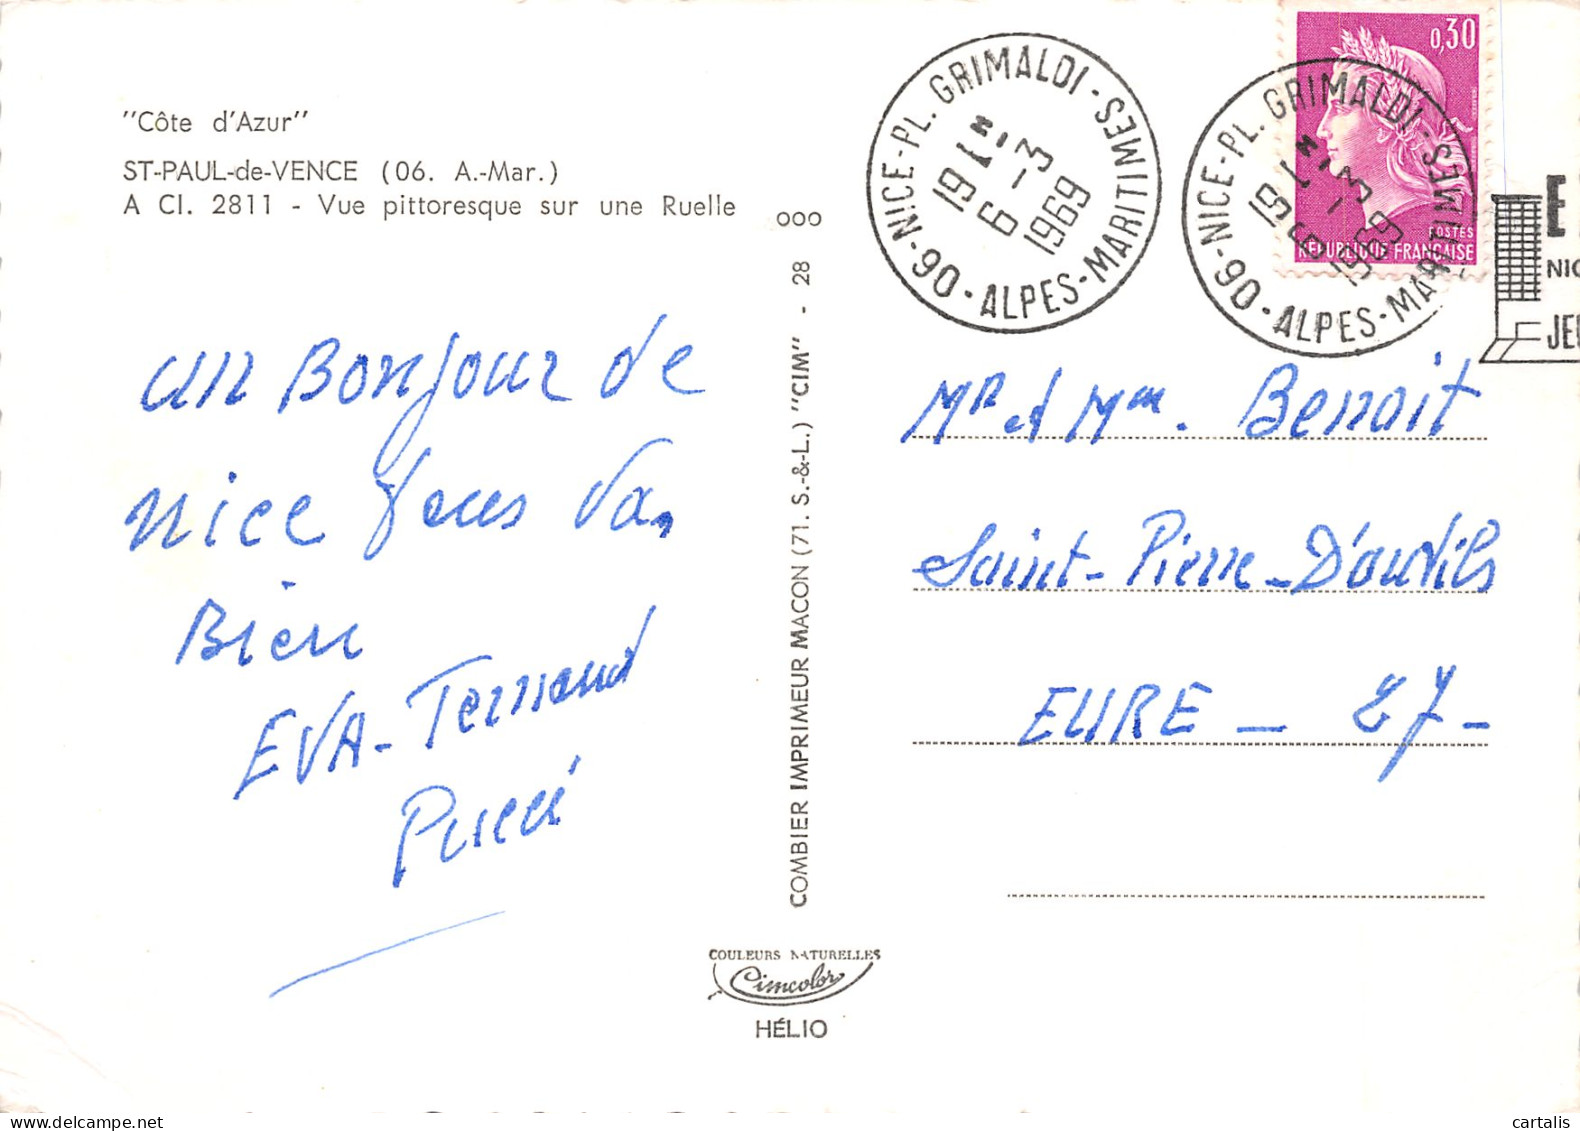 "Côte d'Azur"
ST-PAUL-de-VENCE (06. A.-Mar.)
A Cl. 2811 - Vue pittoresque sur une Ruelle
un Bonjour de
Nice
Bien
EVA - Fernand
Pucci
COMBIER IMPRIMEUR MACON (71. S.-&-L.) "CIM" - 28
ooo
COULEURS NATURELLES
Cimcolor
HÉLIO
NICE-PL. GRIMALDI - ALPES-MARITIMES - 90
19H
6 - 3
1969
NICE-PL. GRIMALDI - ALPES-MARITIMES - 90
19H
6 - 3
1969
0,30
POSTES
REPUBLIQUE FRANCAISE
E
NIC
JEU
Mr et Mme. Benoit
Saint-Pierre-D'autils
EURE - 27 -
cartalis